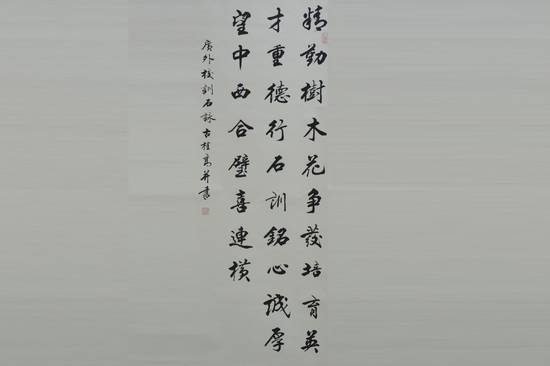 精勤樹木花争發培育英
才重德行石訓銘心誠厚
望中西合璧喜連横
廣外校訓石詠古桂高并書